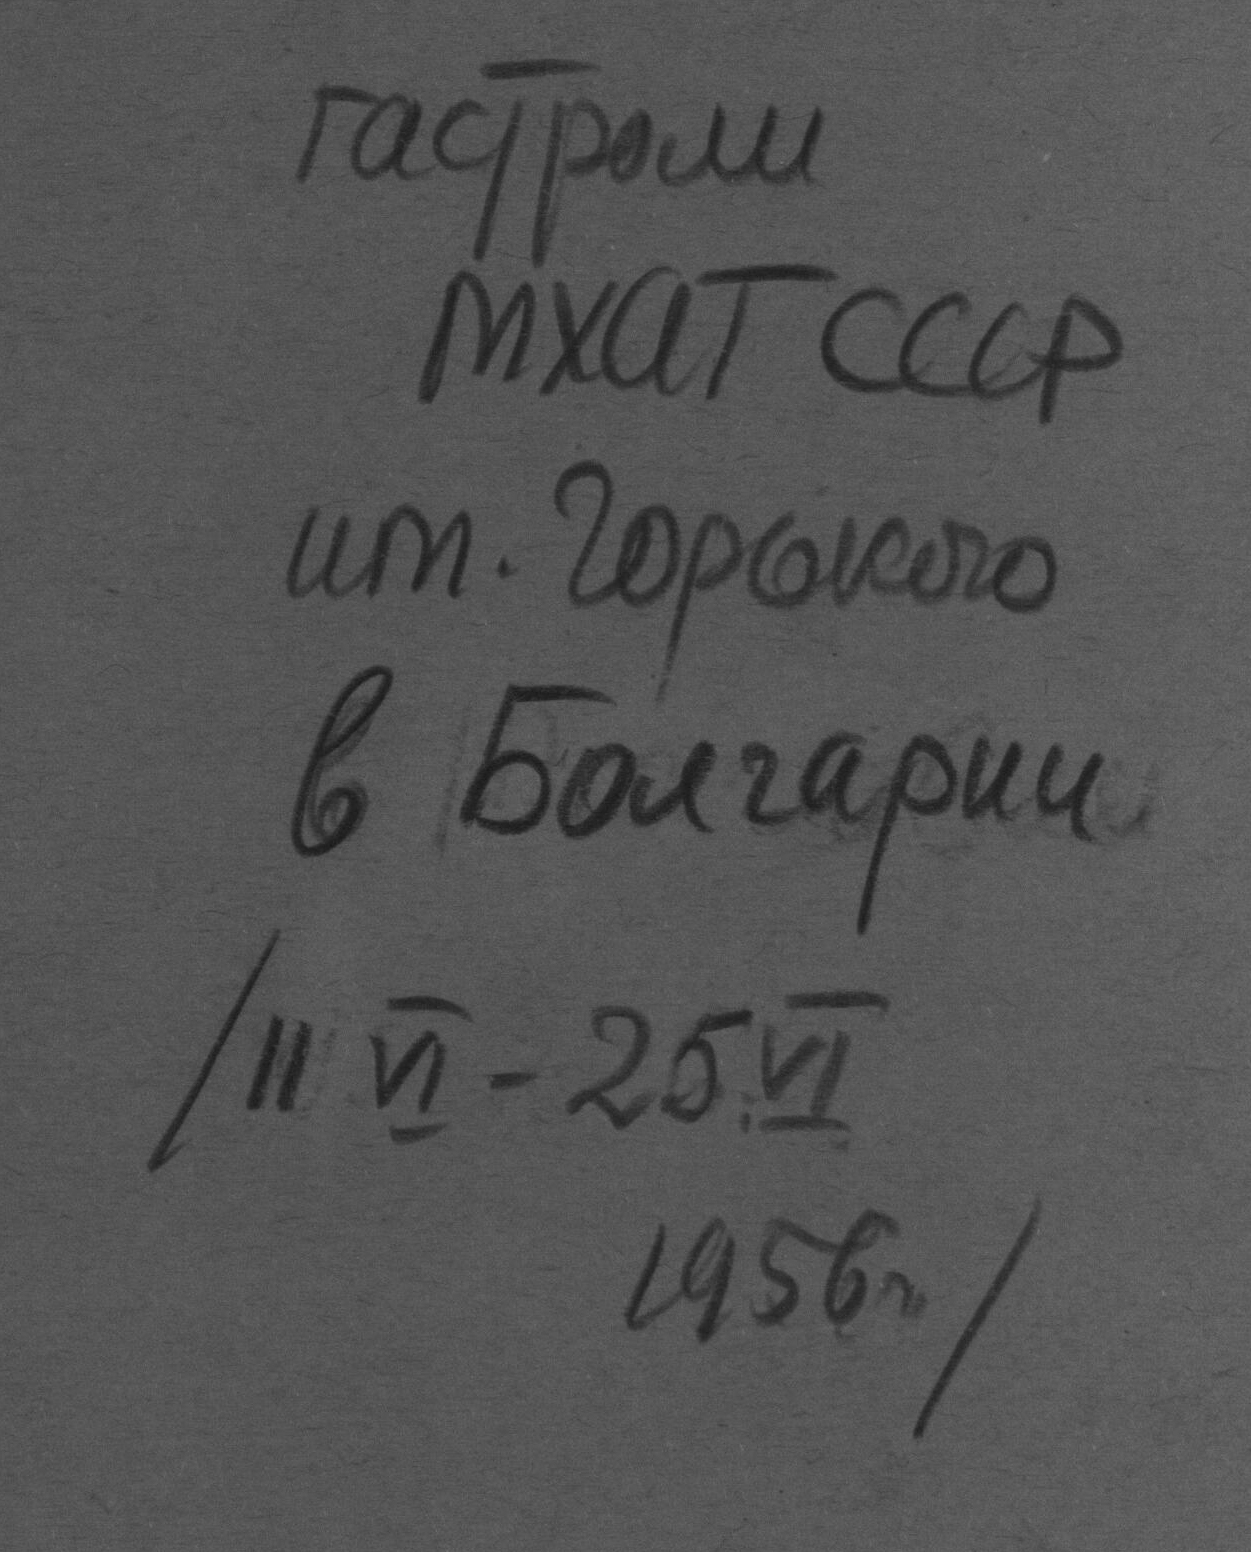 гастроли
МХАТ СССР
им. Горького
в Болгарии
/11 VI - 25.VI
1956г./